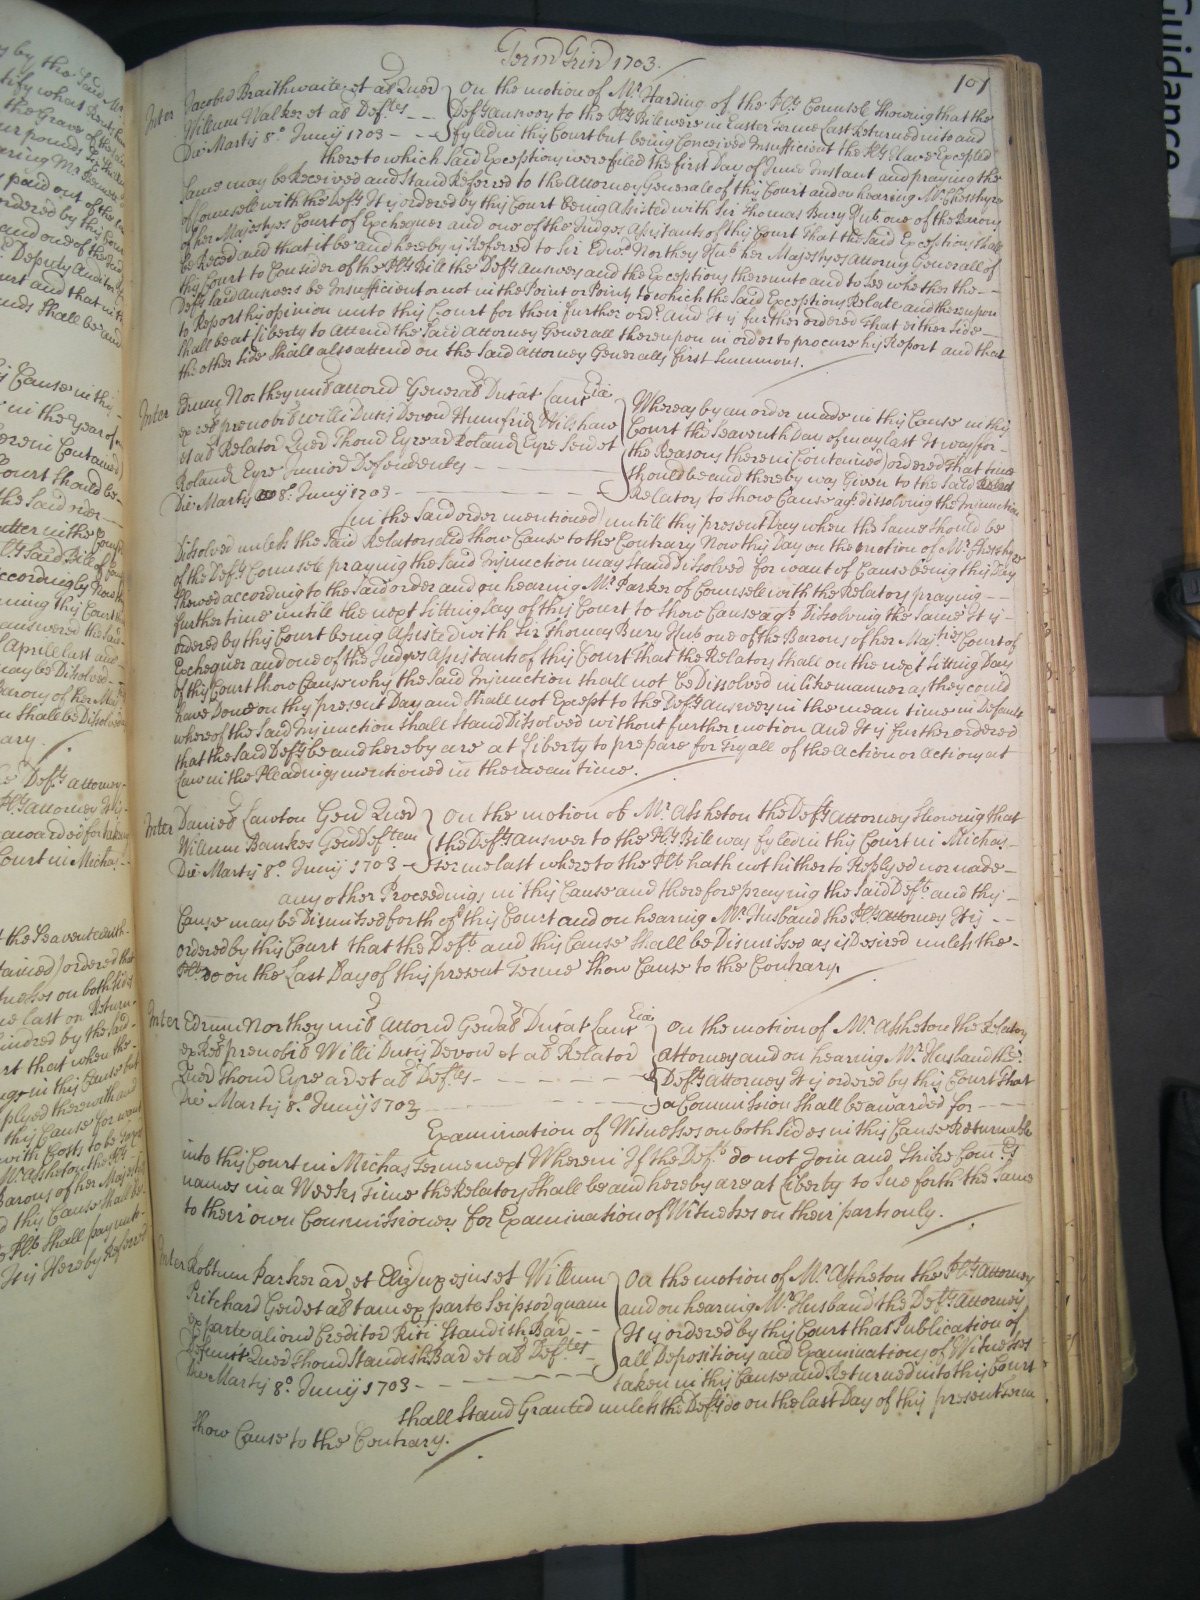 Termino Trin 1703.
107
Inter Jacobum Braithwaite et al Quer
Willum Walker et al Deftes
Die Martis 8o Junij 1703
On the motion of Mr Harding of the Plts Counsele Shewing that the
Defts answer to the Plts Bill were in Easter Terme last Returned into and
fyled in this Court but being Conceived Insufficient the Plts Have Excepted
thereto which said Exceptions were filed the first Day of June Instant and praying the
Same may be Received and Stand Referred to the Attorney Generale of this Court and on hearing Mr Chesshyre
of Counsell with the Defts It is ordered by this Court being Assisted with Sir Thomas Bury Knt one of the Barons
of her Majestyes Court of Exchequer and one of the Judges Assistants of this Court That the Said Exceptions Shall
be Reced and that it be and hereby is Referred to Sir Edwd Northey Knt her Majestyes Attorney Generall of
this Court to Consider of the Plts Bill the Defts answer and the Exceptions thereunto and to See whether the
Defts said answers be Insufficient or not in the Point or Points to which the said Exceptions Relate and thereupon
to Report his opinion unto this Court for their further ordr And It is further ordered That either side
Shall be at Liberty to attend the Said Attorney Generall thereupon in order to procure his Report and that
the other side Shall also attend on the Said attorney Generalls first Summons.
Inter Edrum Northey mil attorn General Ducat Lanc Eia
ex rel prenobil Willi Ducis Devon Humfrid Wilshaw
et al Relator Quer Thom Eyre ar Roland Eyre Sen et
Roland Eyre Junior Defendentes
Die Martis 8o Junij 1703
Whereas by an order made in this Cause in this
Court the Seaventh Day of may last It was for
the Reasons therein (Contained) ordered that time
should be and thereby was Given to the Said
Relators to show Cause agt dissolving the Injunction
(in the Said order mentioned) untill this present Day when the same should be
Dissolved unless the Said Relators did show Cause to the Contrary Now this Day on the motion of Mr Chesshyre
of the Defts Counsele praying the Said Injunction may Stand Dissolved for want of Cause being this Day
Shewed according to the Said order and on hearing Mr Parker of Counsele with the Relators praying
further time untill the next Sitting Day of this Court to show Cause agt Dissolving the Same It is
ordered by this Court being Assisted with Sir Thomas Bury Knt one of the Barons of her Majties Court of
Exchequer and one of the Judges Assistants of this Court That the Relators shall on the next Sitting Day
of this Court show Cause why the said Injunction shall not be Dissolved in like manner as they could
have Done on this present Day and Shall not Except to the Defts Answer in the mean time in Default
whereof the Said Injunction Shall Stand Dissolved without further motion And It is further ordered
that the Said Defts be and hereby are at Liberty to prepare for Tryall of the Action or Actions at
Law in the Pleadings mentioned in the mean time.
Inter Daniel Lawton Gen Quer
Willum Bankes Gen Deftem
Die Martis 8o Junij 1703
On the motion of Mr Assheton the Defts attorney Shewing that
the Defts answer to the Plts Bill was fyled in this Court in Michas
terme last whereto the Plt hath not hitherto Replyed nor made
any other Proceedings in this Cause and therefore praying the Said Deft and this
Cause may be Dismissed forth of this Court and on hearing Mr Husband the Plts attorney It is
ordered by this Court that the Deft and this Cause Shall be Dismissed as is Desired unless the
Plt do on the Last Day of this present Terme Show Cause to the Contrary.
Inter Edrum Northey mil Attorn General Ducat Lanc Eia
ex Rel prenobil Willi Ducis Devon et al Relator
Quer Thom Eyre ar et al Deftes
Die Martis 8o Junij 1703
On the motion of Mr Assheton the Relators
attorney and on hearing Mr Husband the
Defts attorney It is ordered by this Court That
a Commission Shall be awarded for
Examination of Witnesses on both sides in this Cause Returnable
into this Court in Michas Terme next Wherein If the Defts do not Join and Strike Comrs
names in a Weeks Time the Relators Shall be and hereby are at Liberty to Sue forth the Same
to their own Commissioners for Examination of Witnesses on their parts only.
Inter Robtum Parker ar et Eliz ux ejus et Willum
Pritchard Gen et al tam ex parte Seipsor quam
ex parte aliorum Creditor Riti Standish Bar
Defunct Quer Thom Standish Bar et al Deftes
Die Martis 8o Junij 1703
On the motion of Mr Assheton the Plts attorney
and on hearing Mr Husband the Defts attorney
It is ordered by this Court that Publication of
all Depositions and Examinations of Witnesses
taken in this Cause and Returned into this Court
shall Stand Granted unless the Defts do on the last Day of this present Term
Show Cause to the Contrary.
Guidance